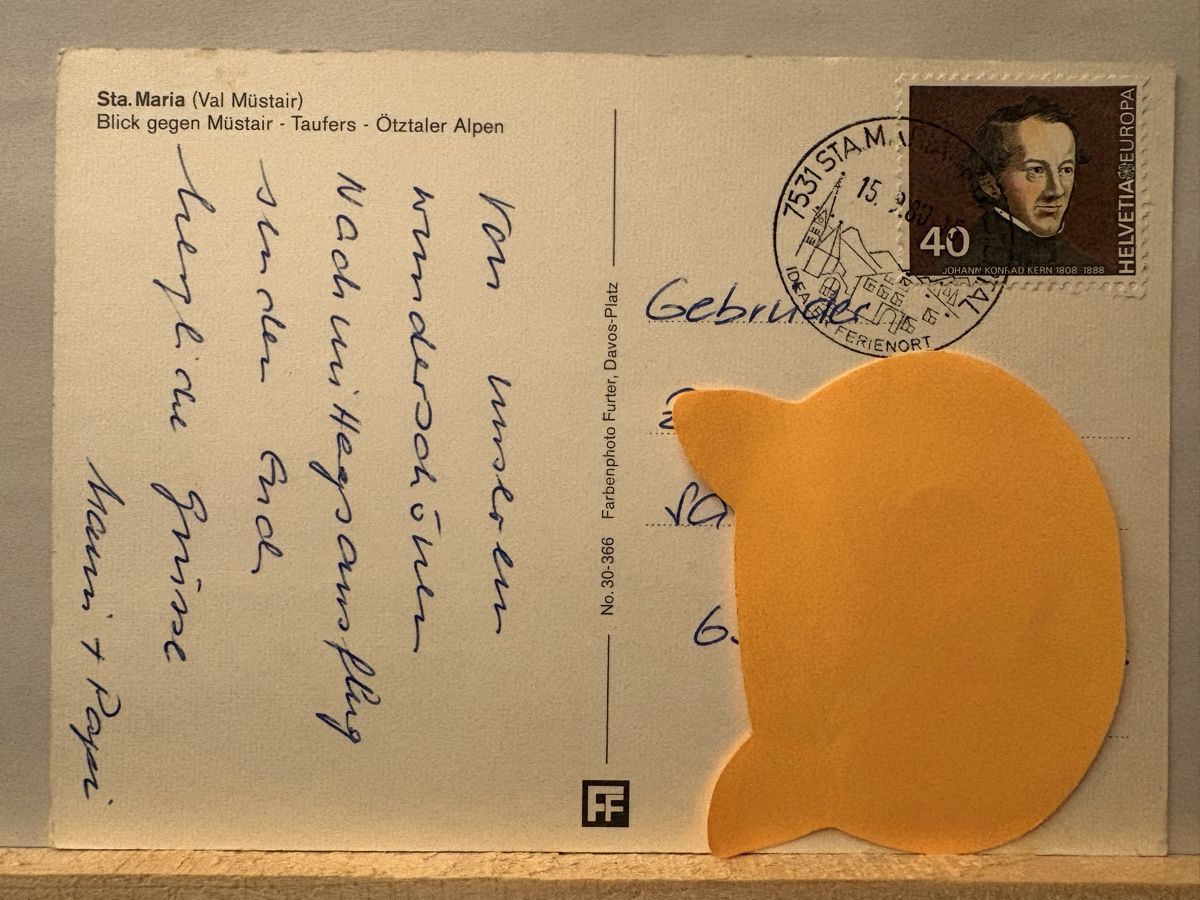 Sta. Maria (Val Müstair)
Blick gegen Müstair - Taufers - Ötztaler Alpen
Von unserem
wunderschönen
Nachmittagsausflug
senden Euch
herzliche Grüsse
Mami + Papi
No. 30-366 Farbenphoto Furter, Davos-Platz
FF
7531 STA. MARIA
15. 9.80
IDEALER FERIENORT
40
JOHANN KONRAD KERN 1808-1888
HELVETIA EUROPA
Gebrüder
6.